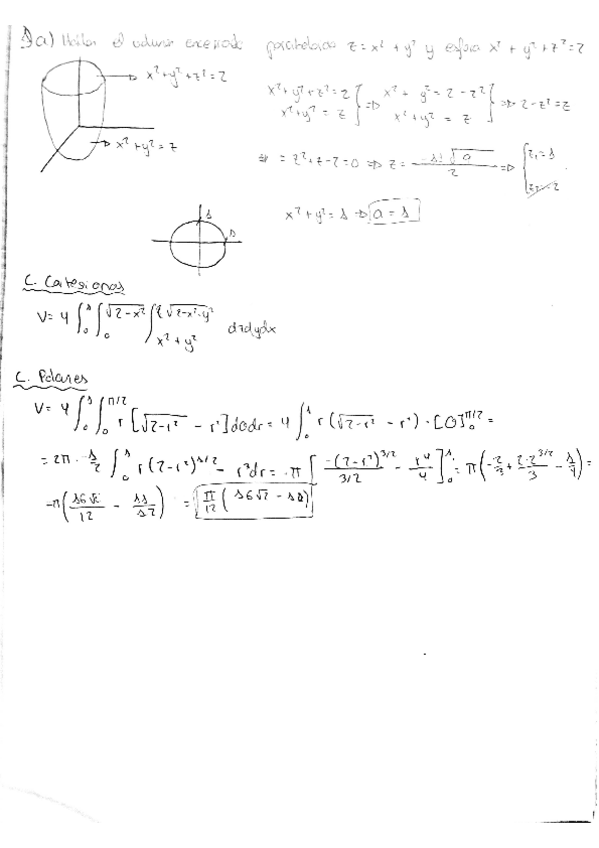 a) Hallar el volumen encerrado paraboloide z = x² + y² y esfera x² + y² + z² = 2
x² + y² + z² = 2
x² + y² = z
x² + y² + z² = 2
x² + y² = z
⇒ x² + y² = 2 - z²
x² + y² = z
⇒ 2 - z² = z
⇒ = z² + z - 2 = 0 ⇒ z = -1 ± √9 / 2 ⇒ z₁ = 1
z₂ = -2
x² + y² = 1 ⇒ a = 1
1
1
C. Cartesianas
V = 4 ∫₀¹ ∫₀^√(2-x²) ∫_(x²+y²)^√(2-x²-y²) dz dy dx
C. Polares
V = 4 ∫₀¹ ∫₀^(π/2) r [√(2-r²) - r²] dθ dr = 4 ∫₀¹ r (√(2-r²) - r²) · [θ]₀^(π/2) =
= 2π · 1/2 ∫₀¹ r (2-r²)^(1/2) - r³ dr = π [ -(2-r²)^(3/2) / 3/2 - r⁴/4 ]₀¹ = π ( -2/3 + 2·2^(3/2)/3 - 1/4 ) =
= π ( 16√2/12 - 11/12 ) = π/12 ( 16√2 -